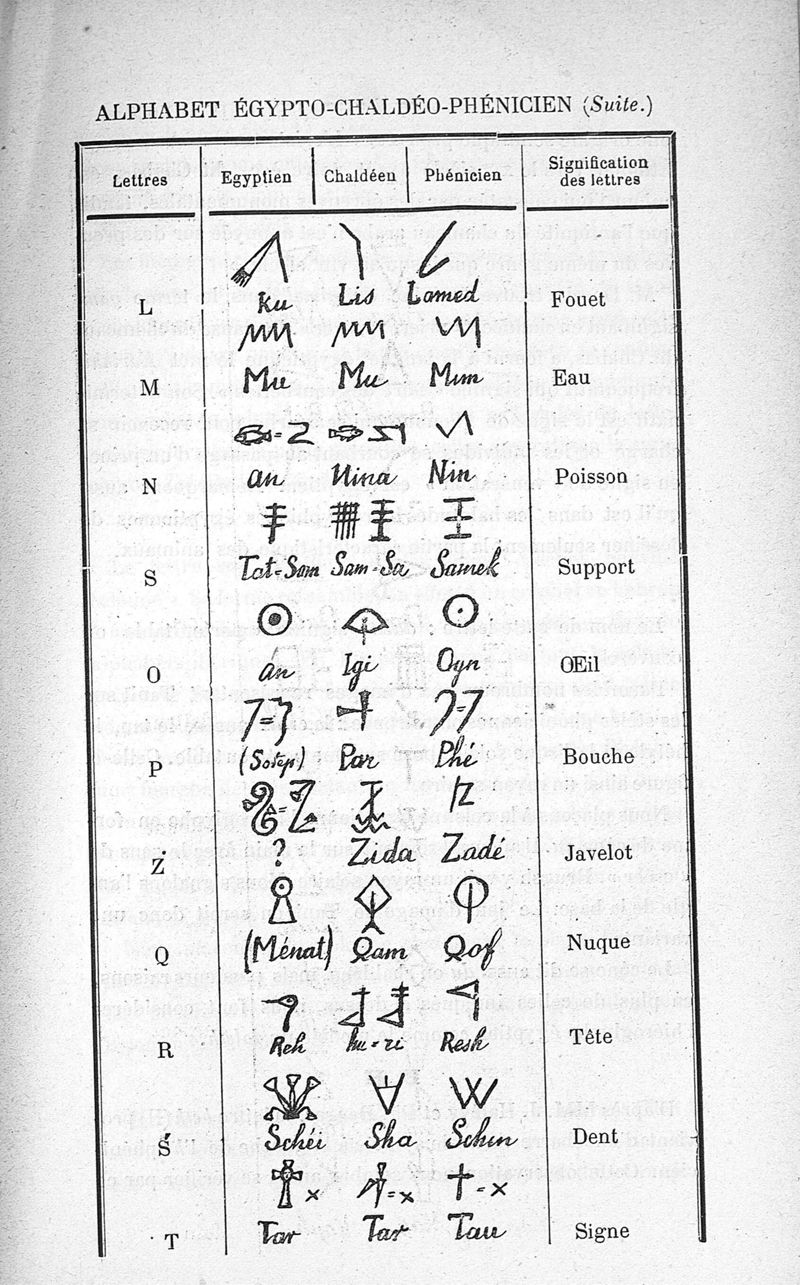 ALPHABET ÉGYPTO-CHALDÉO-PHÉNICIEN (Suite.)
Lettres Egyptien Chaldéen Phénicien Signification des lettres
L Ku Lis Lamed Fouet
M Mu Mu Mim Eau
N an Nina Nin Poisson
S Tat-Sam Sam-Sa Samek Support
O An Igi Oyn Œil
P (Sotep) Par Phé Bouche
Z ? Zida Zadé Javelot
Q (Ménat) Qam Qof Nuque
R Reh hu=ri Resh Tête
Ś Schéi Sha Schin Dent
T Tar Tar Tau Signe